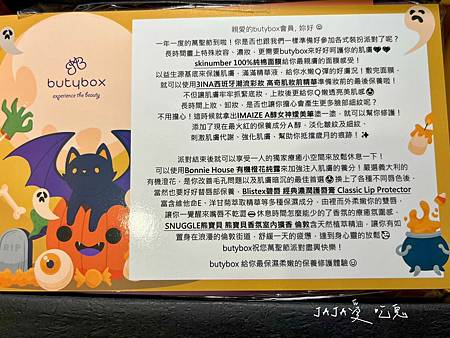 butybox
experience the beauty
親愛的butybox會員, 妳好
一年一度的萬聖節到啦！你是否也跟我們一樣準備好參加各式裝扮派對了呢？
長時間畫上特殊妝容、濃妝，更需要butybox來好好呵護你的肌膚
skinumber 100%純棉面膜給你最親膚的面膜感受！
以益生源基底來保護肌膚，滿滿精華液，給你水嫩Q彈的好膚況！敷完面膜，
就可以使用3INA西班牙潮流彩妝 高奇肌妝前精華準備妝前的最後保養啦！
不但讓肌膚牢牢抓緊底妝，上妝後更給你Q嫩透亮美肌感
長時間上妝、卸妝，是否也讓你擔心會產生更多臉部細紋呢？
不用擔心！這時候就拿出IMAIZE A醇女神嫩美筆塗一塗，就可以幫你修護！
添加了現在最火紅的保養成分A醇，淡化皺紋及細紋、
刺激肌膚代謝、強化肌膚，幫助你抵擋歲月的痕跡！
派對結束後就可以享受一人的獨家療癒小空間來放鬆休息一下！
可以使用Bonnie House 有機橙花純露來加強注入肌膚的養分！嚴選義大利的
有機橙花，是你改善毛孔問題以及肌膚暗沉的最佳首選 換上了各種不同唇色後，
當然也要好好替唇部保養，Blistex碧唇 經典濃潤護唇膏 Classic Lip Protector
富含維他命E、洋甘菊萃取精華等多種保濕成分，由裡而外柔嫩你的雙唇，
讓你一覺醒來嘴唇不乾澀 休息時間怎麼能少的了香氛的療癒氛圍感，
SNUGGLE熊寶貝 熊寶貝香氛室內擴香 倫敦含天然植萃精油，讓你有如
置身在浪漫的倫敦街道，舒緩一天的疲憊，達到身心靈的放鬆
butybox祝您萬聖節派對盡興快樂！
butybox 給你最保濕柔嫩的保養修護體驗
RIP
JAJA愛 吃鬼